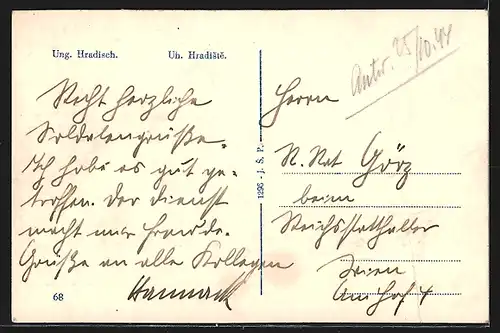 Ung. Hradisch. Uh. Hradiště.
Recht herzliche
Soldatengrüße.
Ich habe es gut ge-
troffen. Der Dienst
macht mir Freude.
Grüße an alle Kollegen
Hannack
68
1296 - J. Š. P.
Antw. 25/10.44
Herrn
R. Rat Görz
beim
Reichsstatthalter
Wien
Am Hof 4